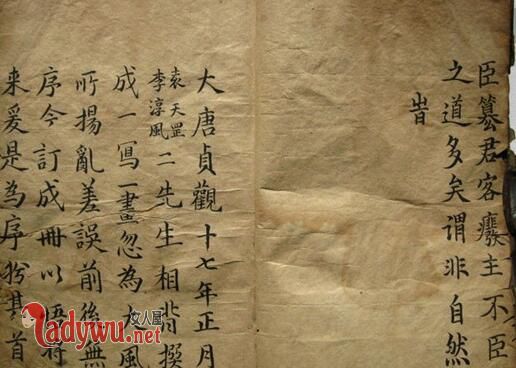 臣篡君客癈主不臣
之道多矣謂非自然
旹
大唐貞觀十七年正月
袁天罡
李淳風
二先生相背撰
成一寫一畫忽為大風
所揚亂差誤前後無
序今訂成冊以將
来爰是為序於其首
女人屋
ladywu.net